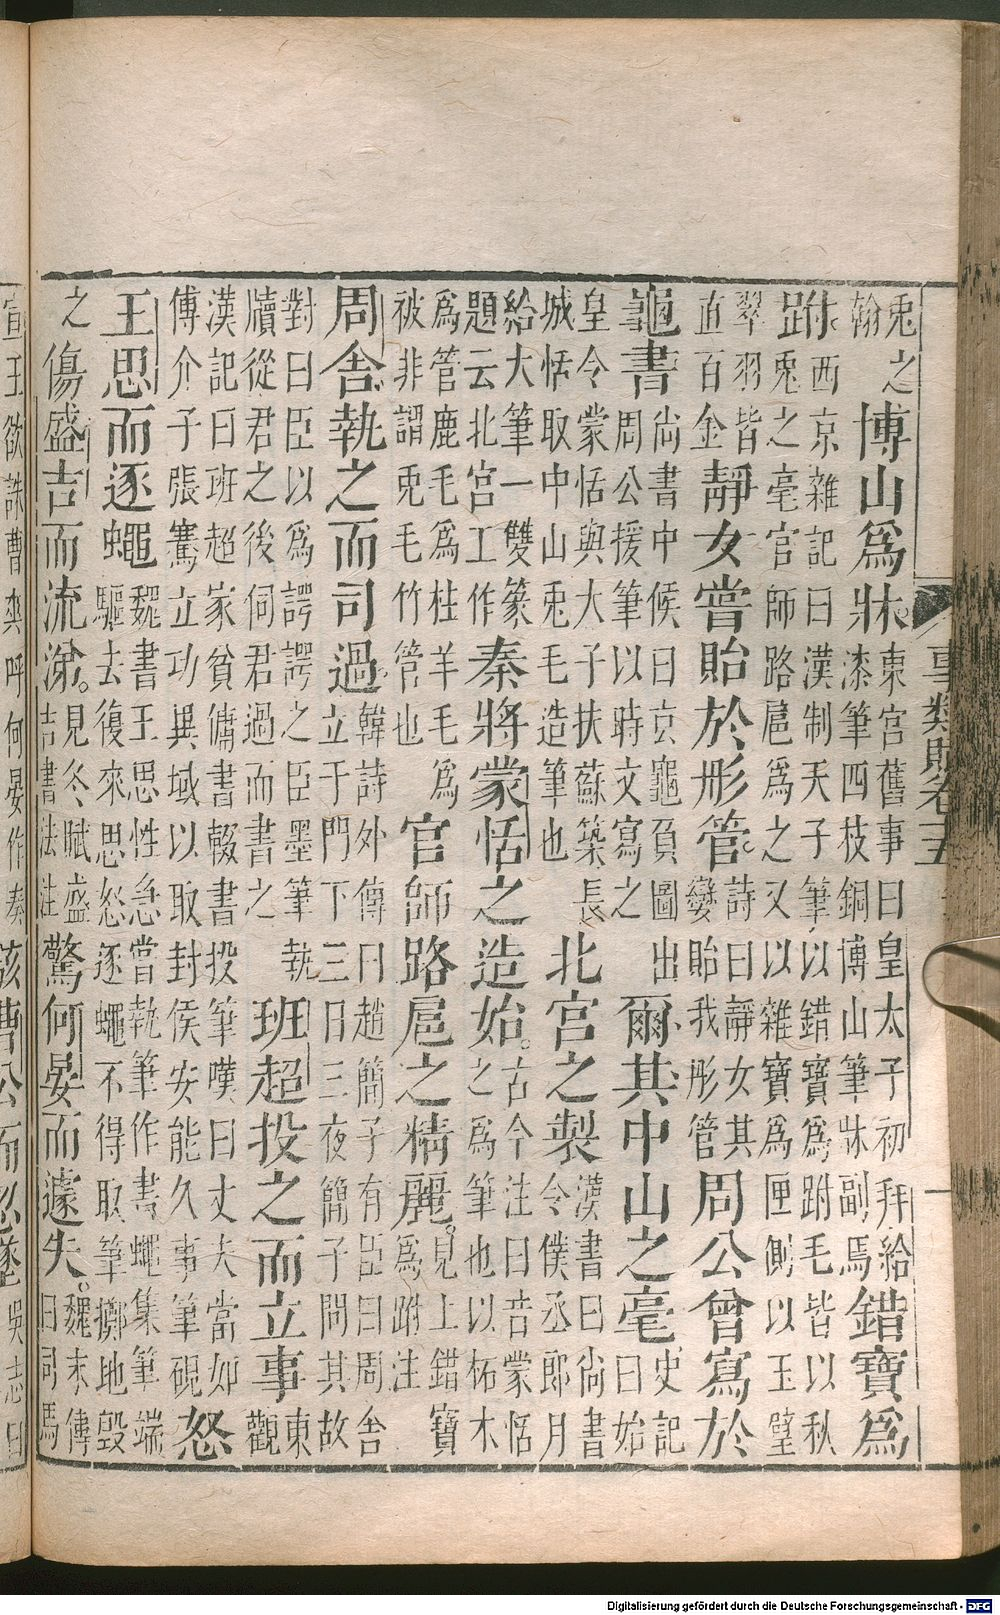 事類賦卷十五
一
兎之翰博山為牀東宮舊事曰皇太子初拜給漆筆四枝銅博山筆牀副焉錯寶為
跗西京雜記曰漢制天子筆以錯寶為跗毛皆以秋兎之毫官師路扈為之又以雜寶為匣側以玉璧
翠羽皆直百金靜女嘗貽於彤管詩曰靜女其孌貽我彤管周公曾寫於
龜書尚書中候曰玄龜負圖出周公援筆以時文寫之爾其中山之毫史記曰始
皇令蒙恬與大子扶蘇築長城恬取中山兎毛造筆也北宮之製漢書曰尚書令僕丞郎月
給大筆一雙篆題云北宮工作秦將蒙恬之造始古今注曰音蒙恬之為筆也以柘木
為管鹿毛為柱羊毛為被非謂兎毛竹管也官師路扈之精麗見上錯寶為跗注
周舍執之而司過韓詩外傳曰趙簡子有臣曰周舍立于門下三日三夜簡子問其故
對曰臣以為諤諤之臣墨筆執牘從君之後伺君過而書之班超投之而立事東觀
漢記曰班超家貧傭書輟書投筆嘆曰丈夫當如傅介子張騫立功異域以取封侯安能久事筆硯怒
王思而逐蠅魏書王思性急嘗執筆作書蠅集筆端驅去復來思怒逐蠅不得取筆擲地毀
之傷盛吉而流涕見冬賦盛吉書法注驚何晏而遽失魏末傳曰司馬
宣王欲誅曹爽呼何晏作奏
吳志曰
Digitalisierung gefördert durch die Deutsche Forschungsgemeinschaft - DFG